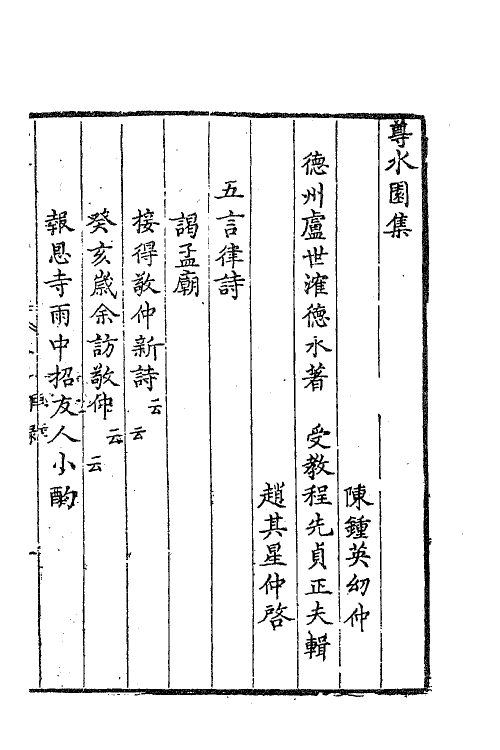 尊水園集
陳鍾英幻仲
德州盧世㴶德水著　受教程先貞正夫輯
趙其星仲啓
五言律詩
謁孟廟
接得敬仲新詩云云
癸亥歲余訪敬仲云云
報恩寺雨中招友人小酌